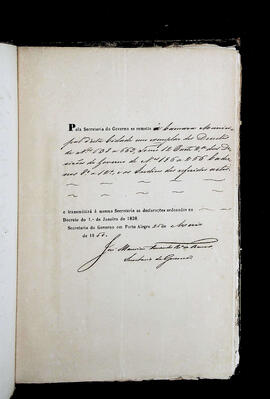 Pela Secretaria do Governo se remette á Camara Munici
pal desta Cidade um exemplar dos Decretos
de Nos. 601 a 663, Tomo 12 Parte 2ª das De
cisões do Governo de Nos. 185 a 256 Cader
nos 8º a 12º, e os Indices dos referidos actos,
e transmittirá á mesma Secretaria as declarações ordenadas no
Decreto do 1.º de Janeiro de 1838.
Secretaria do Governo em Porto Alegre 25 de Maio
de 185
José
Secretario do Governo